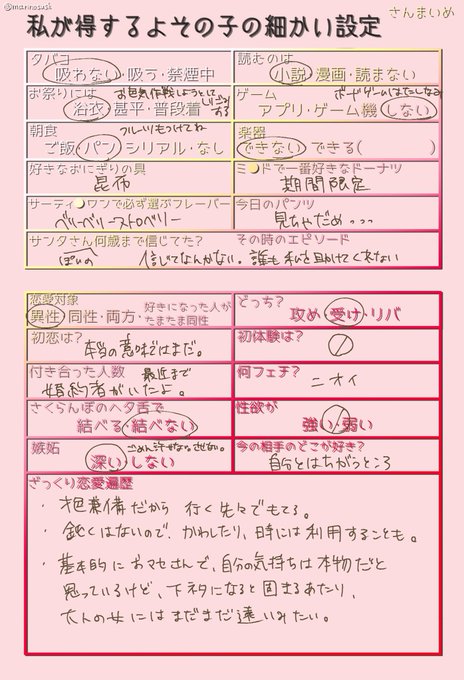 @marinosusk
私が得するよその子の細かい設定
さんまいめ
タバコ
吸わない・吸う・禁煙中
読むのは
小説・漫画・読まない
お祭りには お色気作戦しようとして
浴衣・甚平・普段着
ゲーム ボードゲームはたしなみ
アプリ・ゲーム機・しない
朝食 フルーツもつけてね
ご飯・パン・シリアル・なし
楽器
できない・できる( )
好きなおにぎりの具
昆布
ミ●ドで一番好きなドーナツ
期間限定
サーティ●ワンで必ず選ぶフレーバー
ベリーベリーストロベリー
今日のパンツ
見ちゃだめ...
サンタさん何歳まで信じてた?
その時のエピソード
信じてなんかない。誰も私を助けてくれない
恋愛対象
異性・同性・両方・好きになった人が
たまたま同性
どっち?
攻め・受け・リバ
初恋は?
本当の意味ではまだ。
初体験は?
付き合った人数 最近まで
婚約者がいたよ。
何フェチ?
ニオイ
さくらんぼのヘタ舌で
結べる・結べない
性欲が
強い・弱い
嫉妬
深い・しない
今の相手のどこが好き?
自分とはちがうところ
ざっくり恋愛遍歴
・才色兼備だから行く先々でもてる。
・鈍くはないので、かわしたり、時には利用することも。
・基本的におマセさんで、自分の気持ちは本物だと
思っているけど、下ネタになると固まるあたり、
大人の女にはまだまだ遠いみたい。